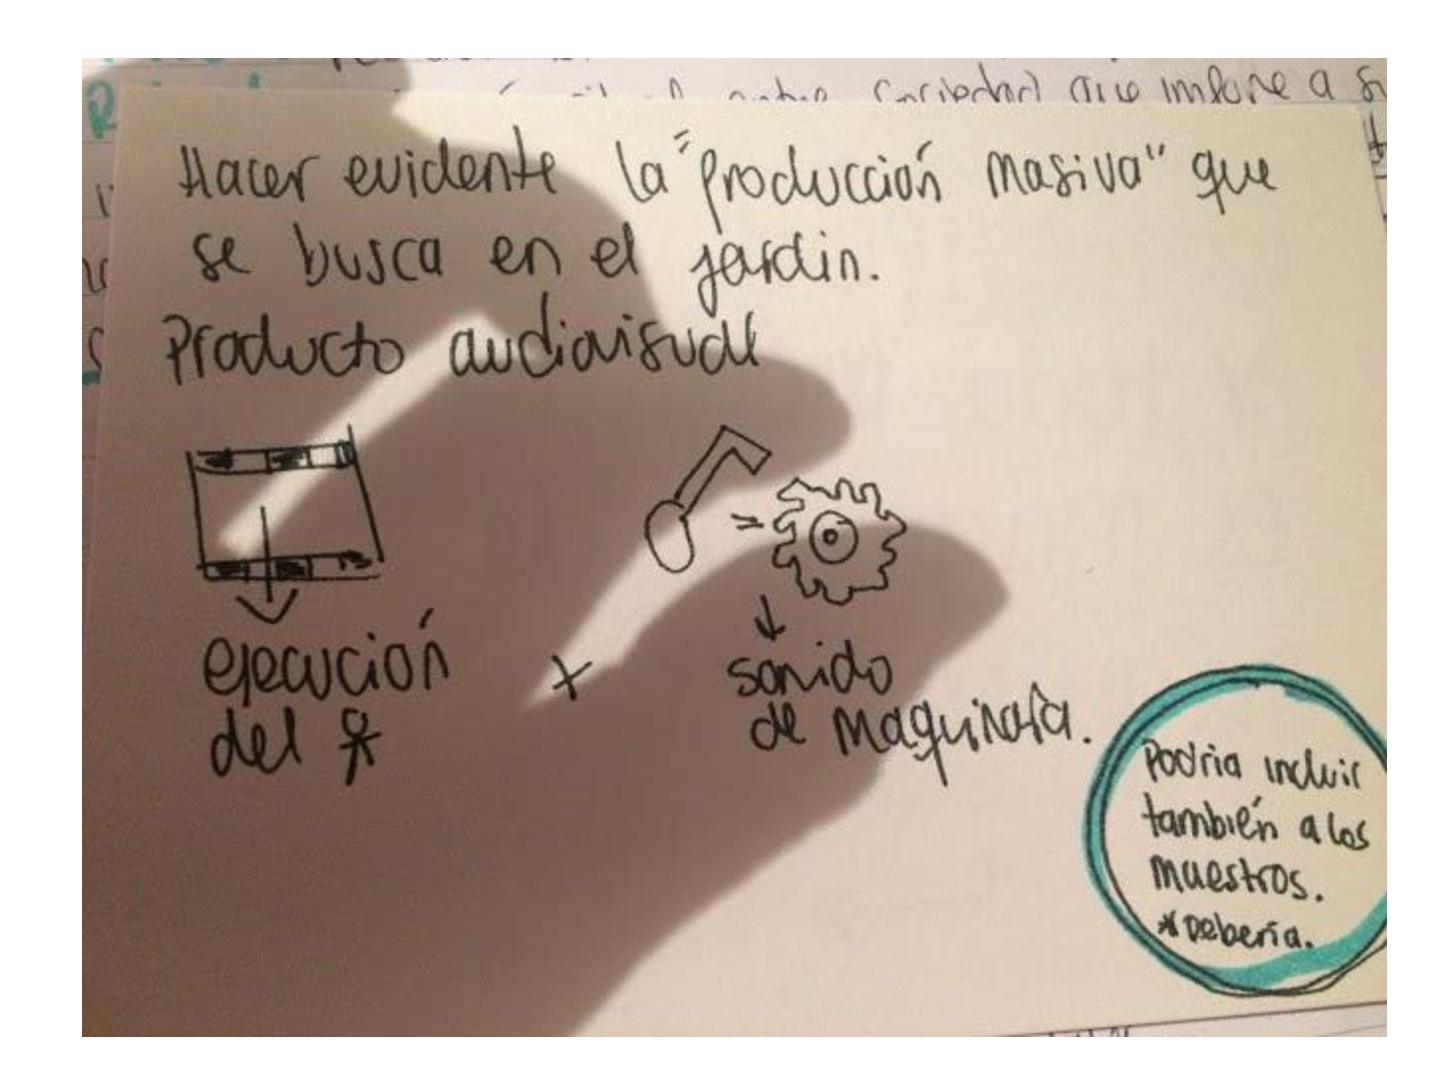 sociedad que impone a su
Hacer evidente la "producción masiva" que
se busca en el jardin.
Producto audiovisual
ejecución
del
+
sonido
de maquinaria.
Podria incluir
también a los
maestros.
*Debería.